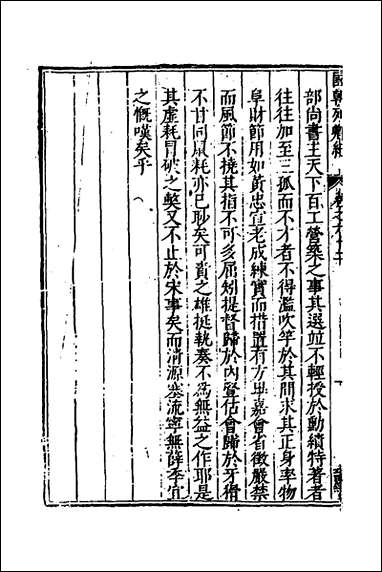 部尚書王天下百工營築之事其選並不輕授於勳績特著者
往往加至三孤而不才者不得濫吹竽於其間求其正身率物
阜財節用如黃忠宣老成練實而措置有方毋嘉會省徵嚴禁
而風節不撓其指不可多屈矧提督歸於內豎估會歸於牙猾
不甘同鼠耗亦已眇矣可責之雄挺執奏不為無益之作耶是
其虛耗冒破之獘又不止於宋事矣而清源塞流寧無薛季宣
之慨嘆矣乎
國朝列卿紀